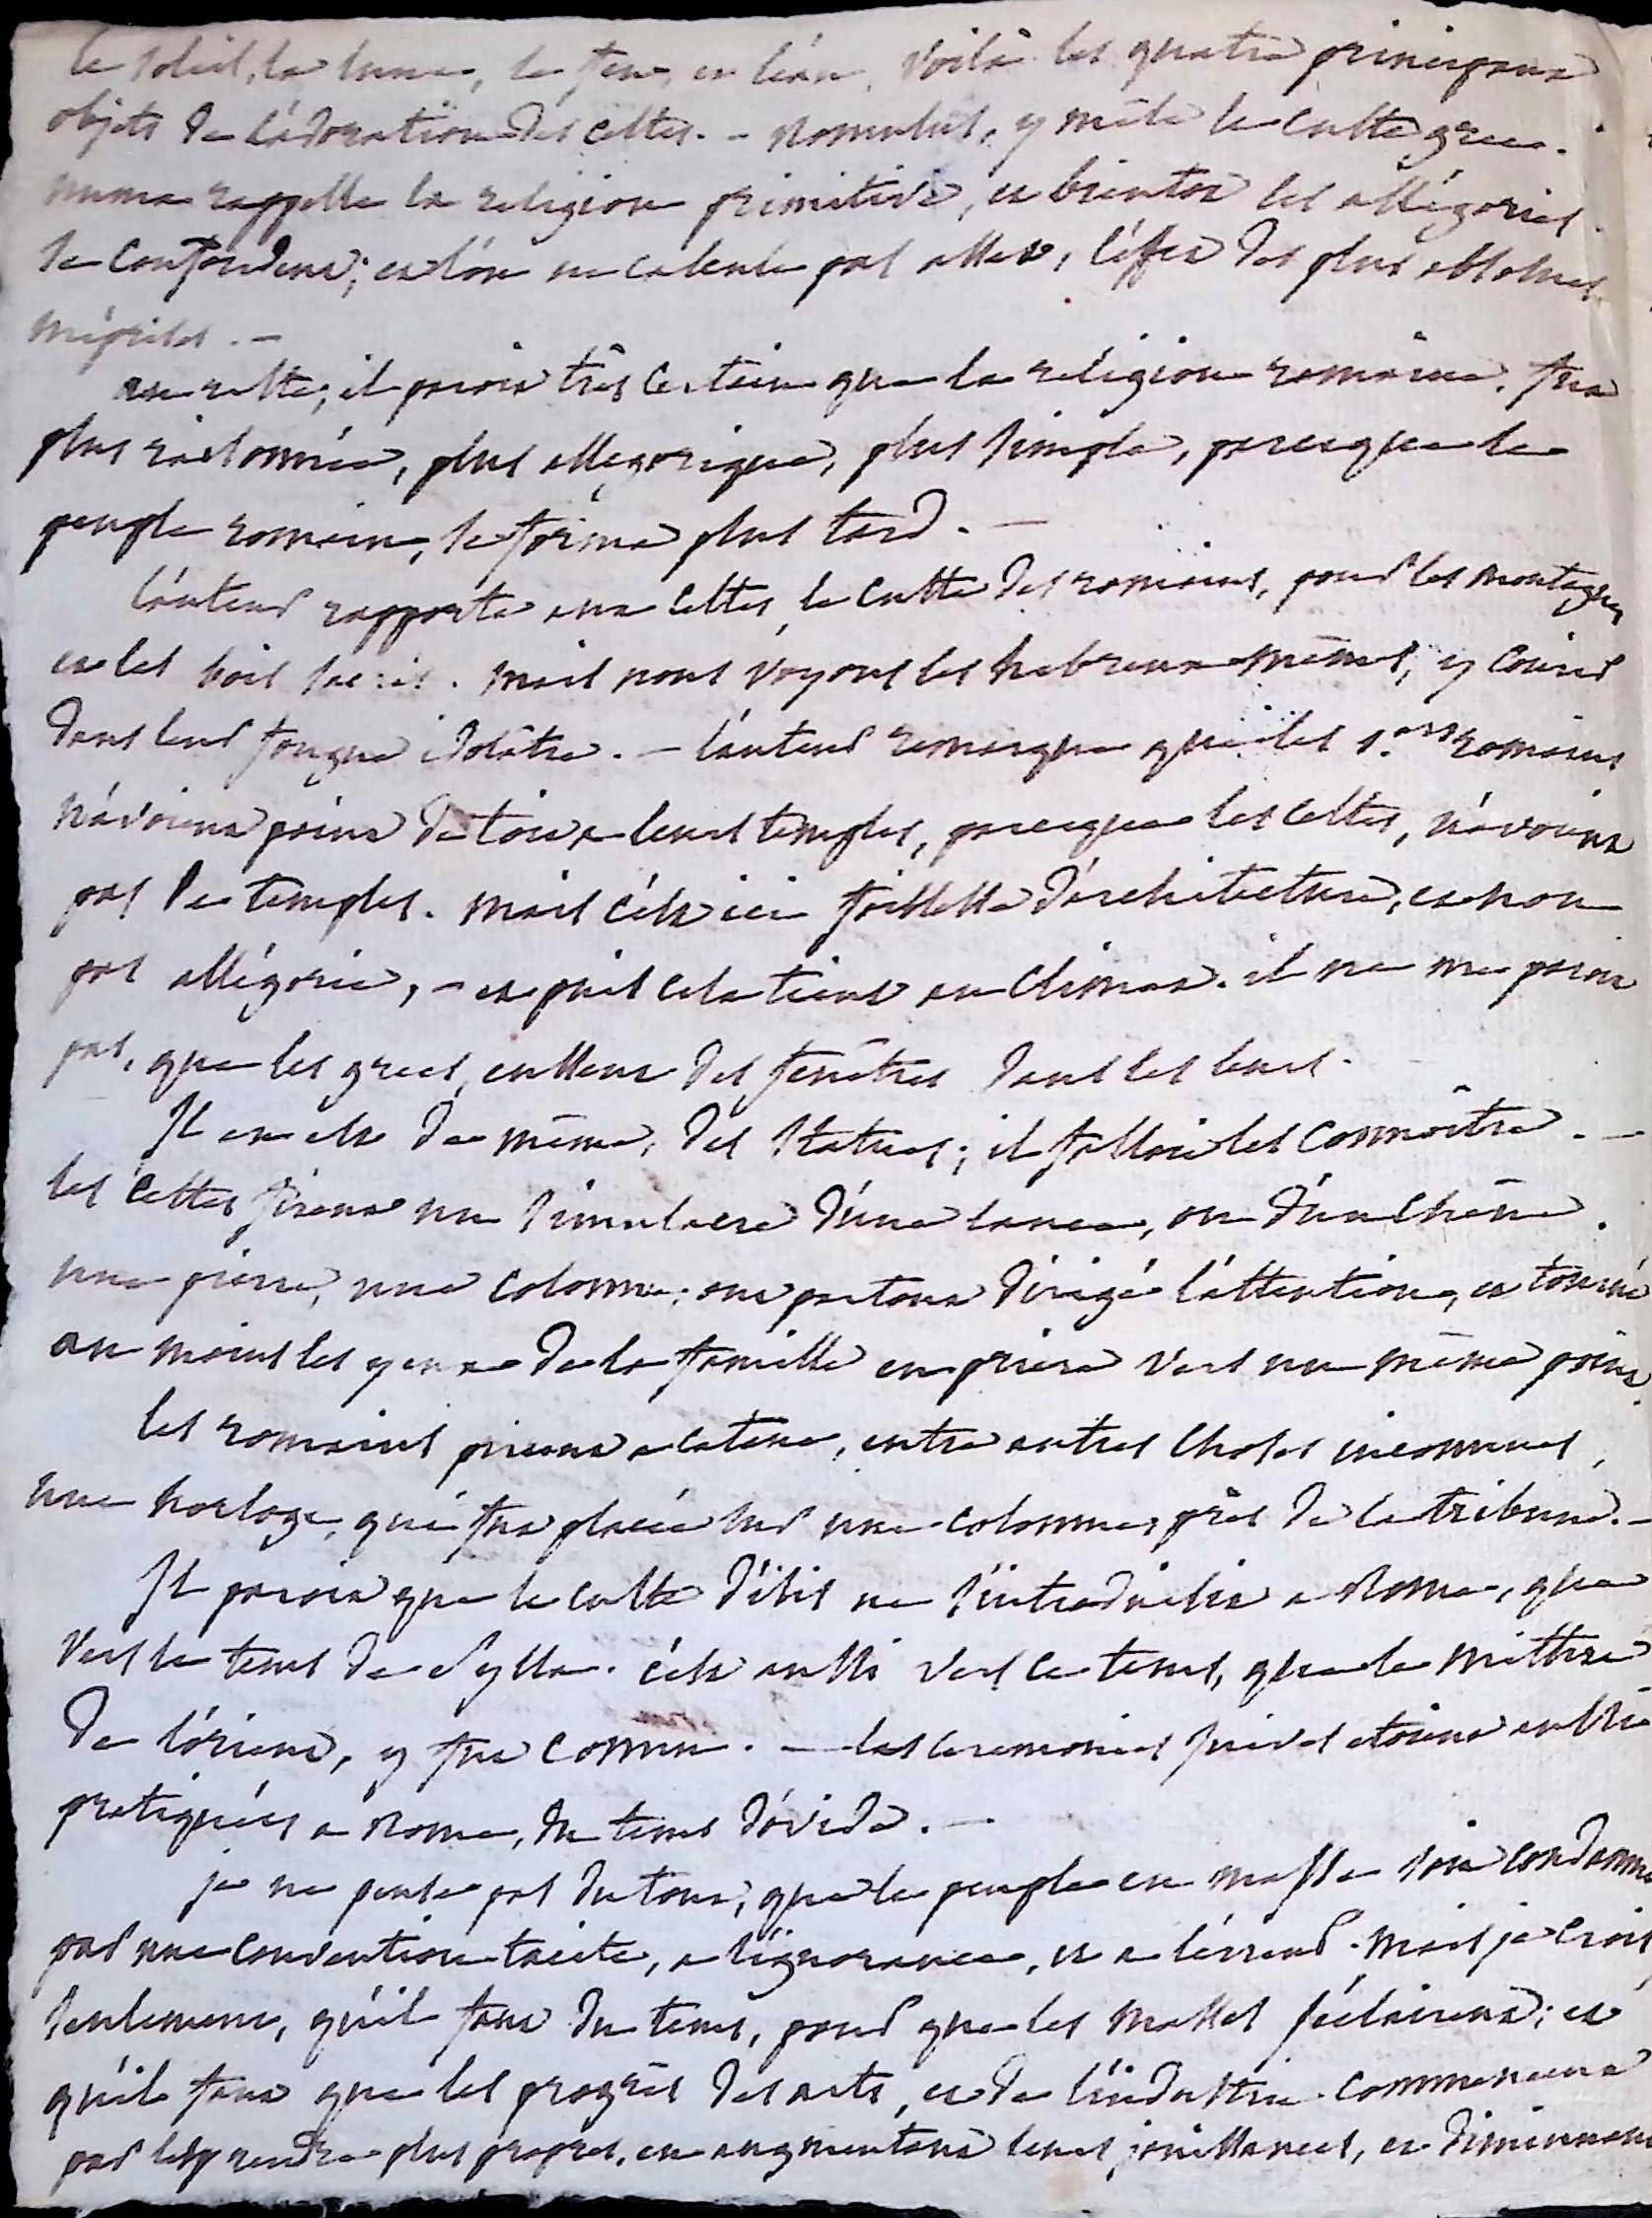 le soleil, la lune, le feu, et l'eau, voilà les quatre principaux
objets de l'adoration des celtes. - Romulus, y mêle le culte grec.
numa rappelle la religion primitive, et bientôt les allégories
se confondent; et l'on ne calcule pas assez, l'effet des plus absolues
méprises. -
au reste, il paroit très certain que la religion romaine, fut
plus raisonnée, plus allegorique, plus simple, parceque le
peuple romain, se forma plus tard. -
l'auteur rapporte aux celtes, le culte des romains, pour les montagnes
et les bois sacrés. mais nous voyons les hebreux mêmes, y courir
dans leur fougue idolâtre. - l'auteur remarque que les 1.ers romains
n'avoient point de toit a leurs temples, parceque les celtes, n'avoient
pas de temples. mais c'est ici foiblesse d'architecture, et non
pas allégorie, - et puis cela tient au climat. il ne me paroit
pas, que les grecs, eussent des fenêtres dans les leurs.
Il en est de même, des statues; il falloit les connoître. -
les celtes firent un simulacre d'une lance, ou d'un chêne.
une pierre, une colonne; ont partout dirigé l'attention, et tourné
au moins les yeux de la famille en priere vers un même point.
les romains prirent a catane, entre autres choses inconnues,
une horloge, qui fut placée sur une colonne, près de la tribune. -
Il paroit que le culte d'isis ne s'introduisit a Rome, que
vers le tems de Sylla. c'est aussi vers ce tems, que le mithra
de l'orient, y fut connu. - les ceremonies juives etoient aussi
pratiquées a Rome, du tems d'ovide. -
je ne pense pas du tout, que le peuple en masse soit condamné
par une convention tacite, a l'ignorance, et a l'erreur. mais je crois
seulement, qu'il faut du tems, pour que les masses s'éclairent; et
qu'il faut que les progrès des arts, et de l'industrie commencent
par les y rendre plus propres, en augmentant leurs jouissances, et diminuant